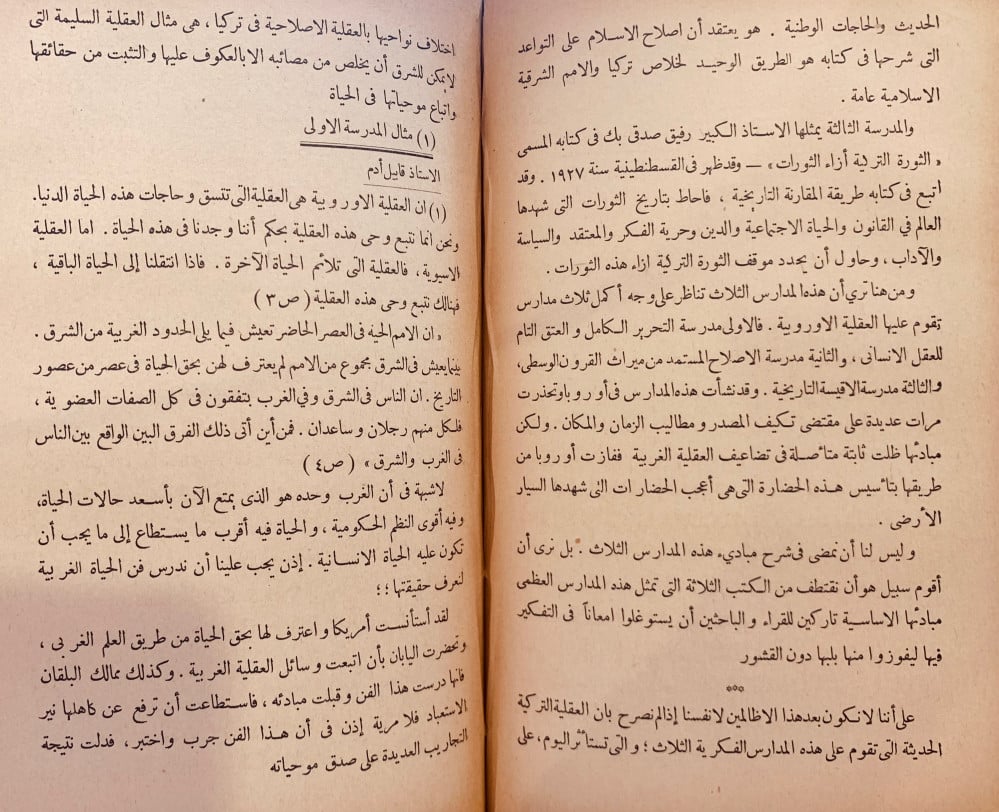 الحديث والحاجات الوطنية . هو يعتقد أن اصلاح الاسلام على التواعد
التى شرحها فى كتابه هو الطريق الوحيد لخلاص تركيا والامم الشرقية
الاسلامية عامة .
والمدرسة الثالثة يمثلها الاستاذ الكبير رفيق صدقى بك فى كتابه المسمى
« الثورة التركية أزاء الثورات » — وقد ظهر فى القسطنطينية سنة ١٩٢٧ . وقد
أتبع فى كتابه طريقة المقارنة التاريخية ، فاحاط بتاريخ الثورات التى شهدها
العالم في القانون والحياة الاجتماعية والدين وحرية الفكر والمعتقد والسياسة
والآداب ، وحاول أن يحدد موقف الثورة التركية ازاء هذه الثورات .
ومن هنا ترى أن هذه المدارس الثلاث تناظر على وجه أكمل ثلاث مدارس
تقوم عليها العقلية الاوروبية . فالاولى مدرسة التحرير الكامل و العتق التام
للعقل الانسانى ، والثانية مدرسة الاصلاح المستمد من ميراث القرون الوسطى،
والثالثة مدرسة الاقيسة التاريخية . وقد نشأت هذه المدارس فى أوروبا وتحذرت
مرات عديدة على مقتضى تكيف المصدر و مطاليب الزمان والمكان . ولكن
مبادئها ظلت ثابتة متأصلة فى تضاعيف العقلية الغربية ففازت أوروبا من
طريقها بتأسيس هذه الحضارة التى هى أعجب الحضارات التى شهدها السيار
الأرضى .
وليس لنا أن نمضى فى شرح مبادىء هذه المدارس الثلاث . بل نرى أن
أقوم سبيل هو أن نقتطف من الكتب الثلاثة التى تمثل هذه المدارس العظمى
مبادئها الاساسية تاركين للقراء والباحثين أن يستوغلوا امعاناً فى التفكير
فيها ليفوزوا منها بلبها دون القشور
***
على أننا لا نكون بعد هذا الا ظالمين لانفسنا إذا لم نصرح بان العقلية التركية
الحديثة التى تقوم على هذه المدارس الفكرية الثلاث ؛ والتى تستأثر اليوم، على
اختلاف نواحيها بالعقلية الاصلاحية فى تركيا ، هى مثال العقلية السليمة التى
لا يمكن للشرق أن يخلص من مصائبه الا بالعكوف عليها والتثبت من حقائقها
واتباع موحياتها فى الحياة
(١) مثال المدرسة الاولى
الاستاذ قابيل أدم
(١) ان العقلية الاوروبية هى العقلية التى تتسق وحاجات هذه الحياة الدنيا.
ونحن انما نتبع وحى هذه العقلية بحكم أننا وجدنا فى هذه الحياة . اما العقلية
الاسيوية ، فالعقلية التى تلائم الحياة الآخرة . فاذا انتقلنا إلى الحياة الباقية ،
فهنالك نتبع وحى هذه العقلية ( ص ٣ )
« ان الامم الحيه فى العصر الحاضر تعيش فيما يلى الحدود الغربية من الشرق .
بينما يعيش فى الشرق مجموع من الامم لم يعترف لهن بحق الحياة فى عصر من عصور
التاريخ . ان الناس فى الشرق وفي الغرب يتفقون فى كل الصفات العضوية ،
فلكل منهم رجلان وساعدان . فمن أين أتى ذلك الفرق البين الواقع بين الناس
فى الغرب والشرق » ( ص ٤ )
لاشبهة فى أن الغرب وحده هو الذى يمتع الآن بأسعد حالات الحياة،
وفيه أقوى النظم الحكومية ، والحياة فيه أقرب ما يستطاع إلى ما يجب أن
تكون عليه الحياة الانسانية . إذن يجب علينا أن ندرس فن الحياة الغربية
لنعرف حقيقتها ؛؛
لقد أستأنست أمريكا واعترف لها بحق الحياة من طريق العلم الغربى ،
وتحضرت اليابان بأن اتبعت وسائل العقلية الغربية . وكذلك ممالك البلقان
فأنها درست هذا الفن وقبلت مبادئه ، فاستطاعت أن ترفع عن كاهلها نير
الاستعباد فلا مرية إذن فى أن هذا الفن جرب واختبر ، فدلت نتيجة
التجاريب العديدة على صدق موحياته